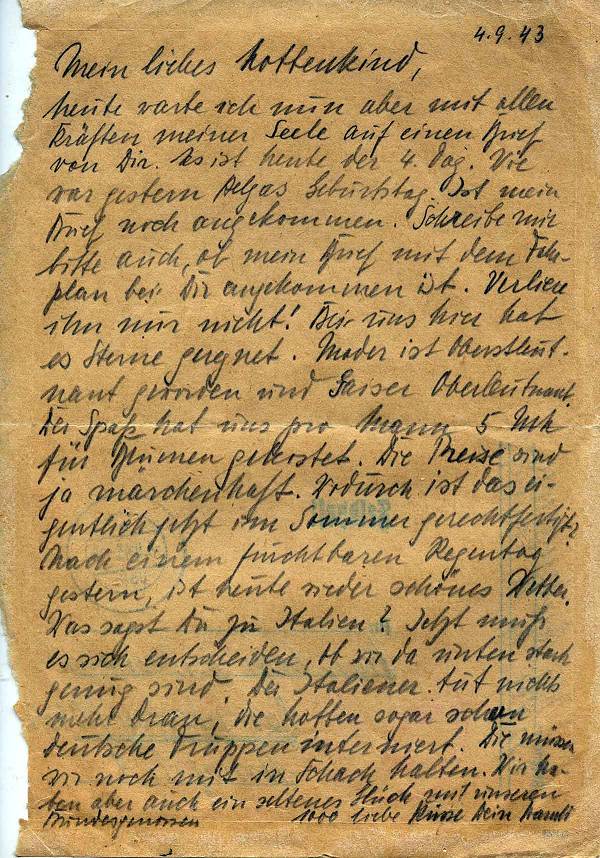 4.9.43
Mein liebes Hottenkind,
heute warte ich nun aber mit allen
Kräften meiner Seele auf einen Brief
von Dir. Es ist heute der 4. Tag. Wie
war gestern Helgas Geburtstag. Ist mein
Brief noch angekommen. Schreibe mir
bitte auch, ob mein Brief mit dem Fahr-
plan bei Dir angekommen ist. Verliere
ihn nur nicht! Bei uns hier hat
es Sterne geregnet. Mader ist Oberstleut-
nant geworden und Gaiser Oberleutnant.
Der Spaß hat uns pro Mann 5 Mk
für Blumen gekostet. Die Preise sind
ja märchenhaft. Wodurch ist das ei-
gentlich jetzt im Sommer gerechtfertigt?
Nach einem furchtbaren Regentag
gestern, ist heute wieder schönes Wetter.
Was sagst Du zu Italien? Jetzt muß
es sich entscheiden, ob wir da unten stark
genug sind. Der Italiener tut nichts
mehr dran, die hatten sogar schon
deutsche Truppen interniert. Die müssen
wir noch mit in Schach halten. Wir ha-
ben aber auch ein seltenes Glück mit unseren
Bundesgenossen 1000 liebe Küsse Dein